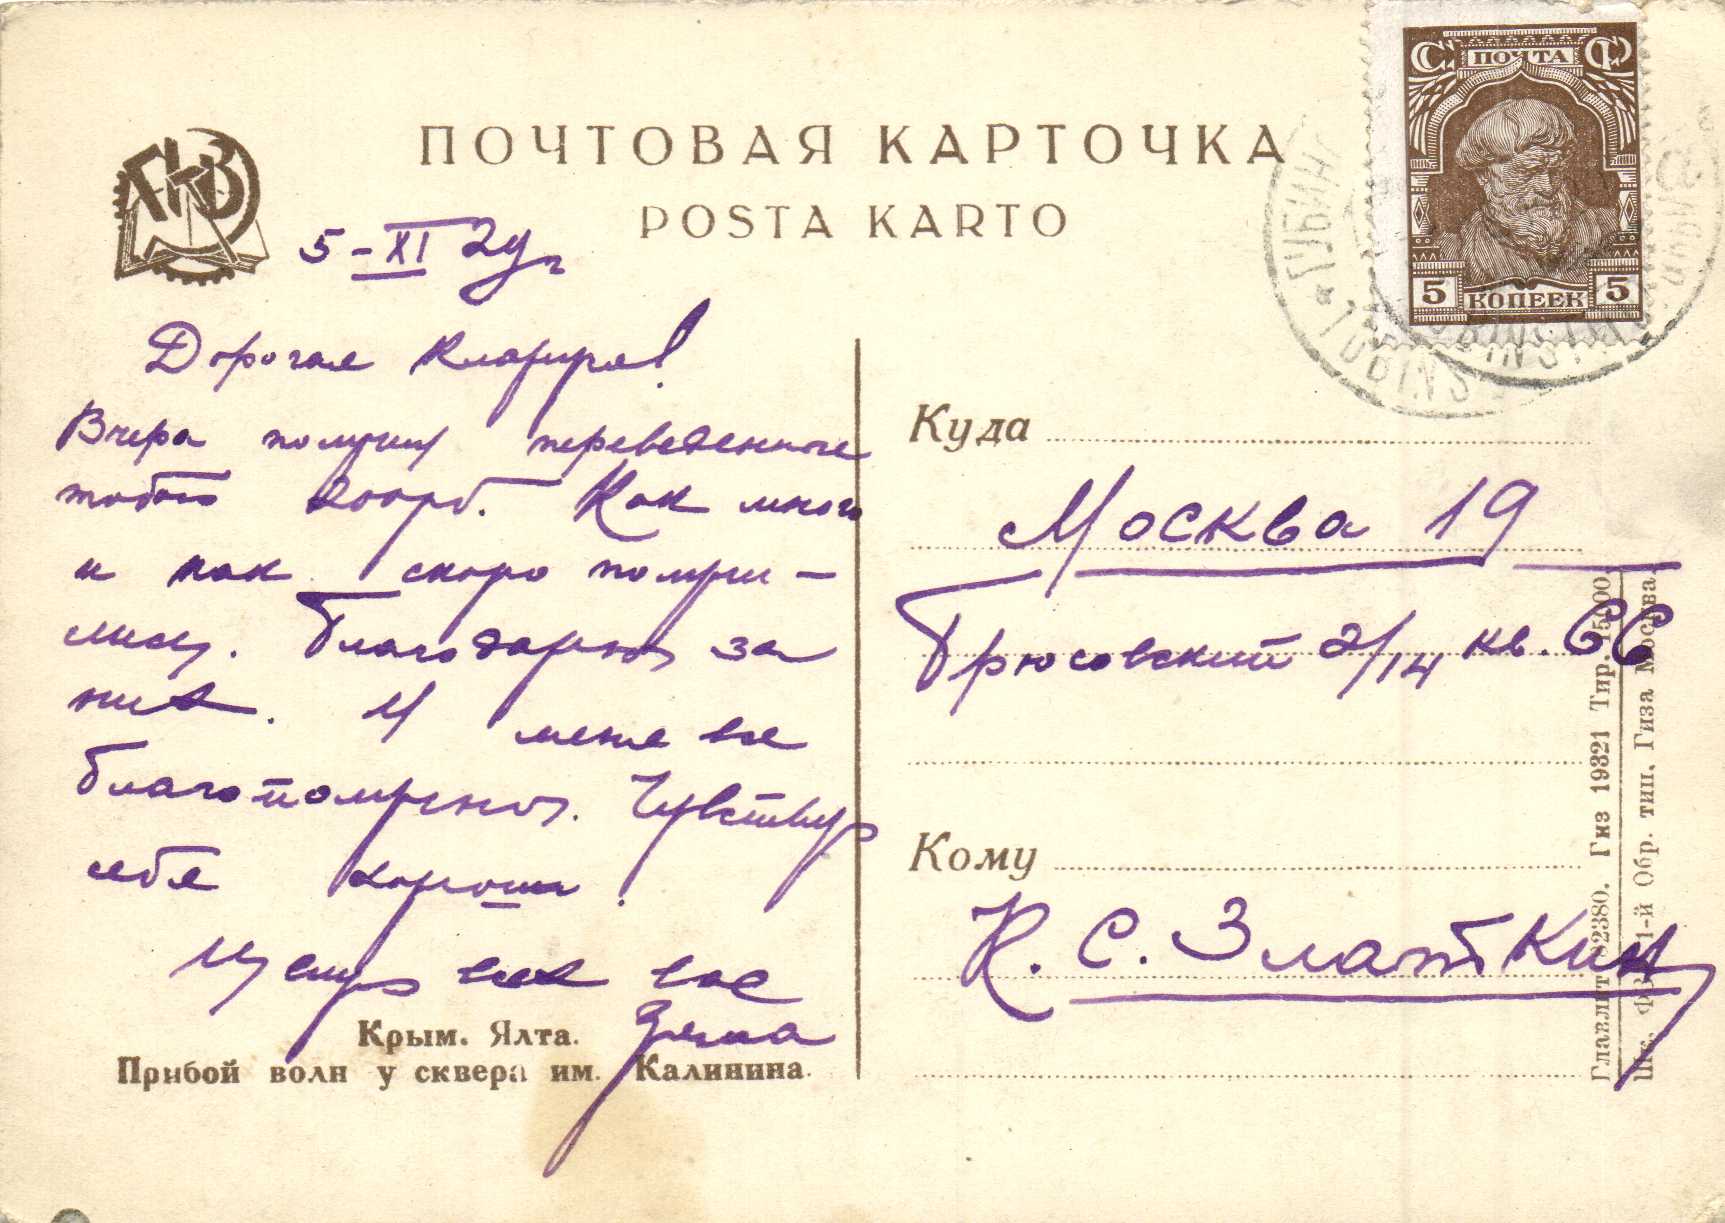 ПОЧТОВАЯ КАРТОЧКА
POSTA KARTO
С. ПОЧТА СФ
5 КОПЕЕК 5
5-XI 29 г
Дорогая
Вчера получил переведенные
тобою 200 рб. Как много
и как скоро получи-
лись. Благодарю за
них. У меня все
благополучно. Чувствую
себя хорошо.
Целую всех вас
Зяма
Крым. Ялта.
Прибой волн у сквера им. Калинина.
Куда
Москва 19
Брюсовский 2/14 кв. 66
Кому
К. С. Златкин
Главлит 22380. Гиз 19321 Тир. 15000.
Шк. ФЗУ 1-й Обр. тип. Гиза Москва.